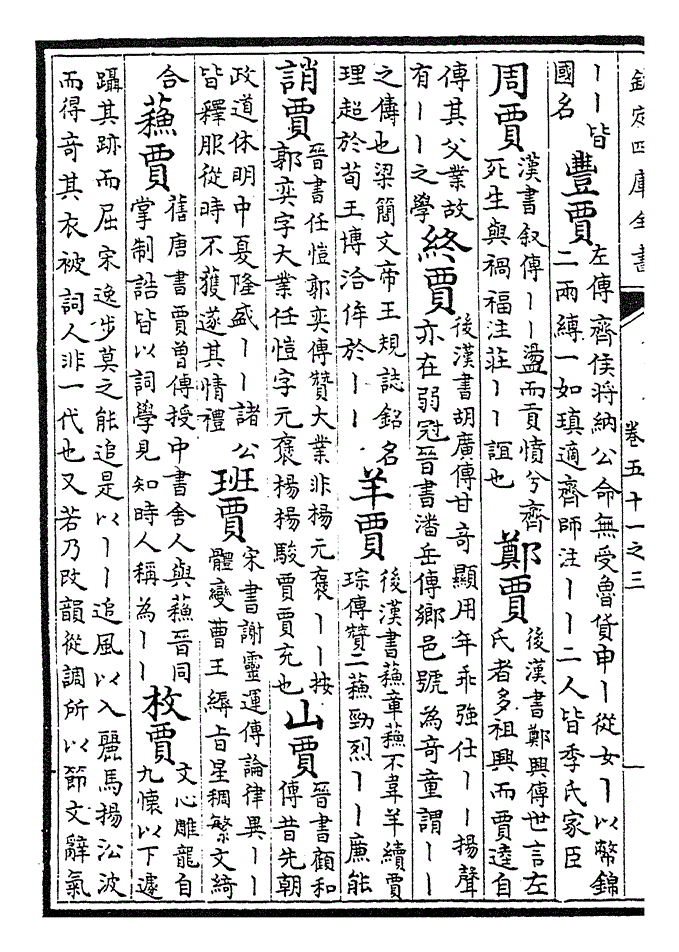 欽定四庫全書
卷五十一之三
丨丨皆
國名
豐賈
左傳齊侯將納公命無受魯貨申丨從女丨以幣錦
二兩縛一如瑱適齊師注丨丨二人皆季氏家臣
周賈
漢書叙傳丨丨盪而貢憤兮齊
死生與禍福注莊丨丨誼也
鄭賈
後漢書鄭興傳世言左
氏者多祖興而賈逵自
傳其父業故
有丨丨之學
終賈
後漢書胡廣傳甘竒顯用年乖強仕丨丨揚聲
亦在弱冠晉書潘岳傳鄉邑號為竒童謂丨丨
之儔也梁簡文帝王規誌銘名
理超於荀王博洽侔於丨丨
羊賈
後漢書蘓章蘓不韋羊續賈
琮傳贊二蘓勁烈丨丨廉能
誚賈
晉書任愷郭奕傳贊大業非楊元褒丨丨按
郭奕字大業任愷字元褒楊楊駿賈賈充也
山賈
晉書顧和
傳昔先朝
政道休明中夏隆盛丨丨諸公
皆釋服從時不獲遂其情禮
班賈
宋書謝靈運傳論律異丨丨
體變曹王縟旨星稠繁文綺
合
蘓賈
舊唐書賈曾傳授中書舍人與蘓晉同
掌制誥皆以詞學見知時人稱為丨丨
枚賈
文心雕龍自
九懷以下遽
躡其跡而屈宋逸步莫之能追是以丨丨追風以入麗馬揚沿波
而得竒其衣被詞人非一代也又若乃改韻從調所以節文辭氣